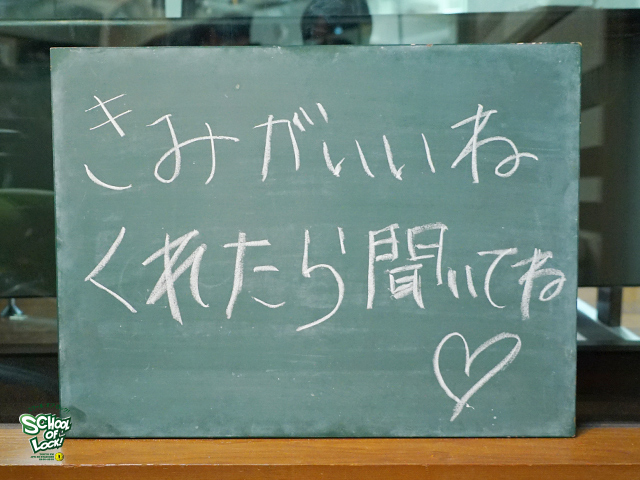 きみがいいね
くれたら聞いてね
SCHOOL
OF
LOCK!